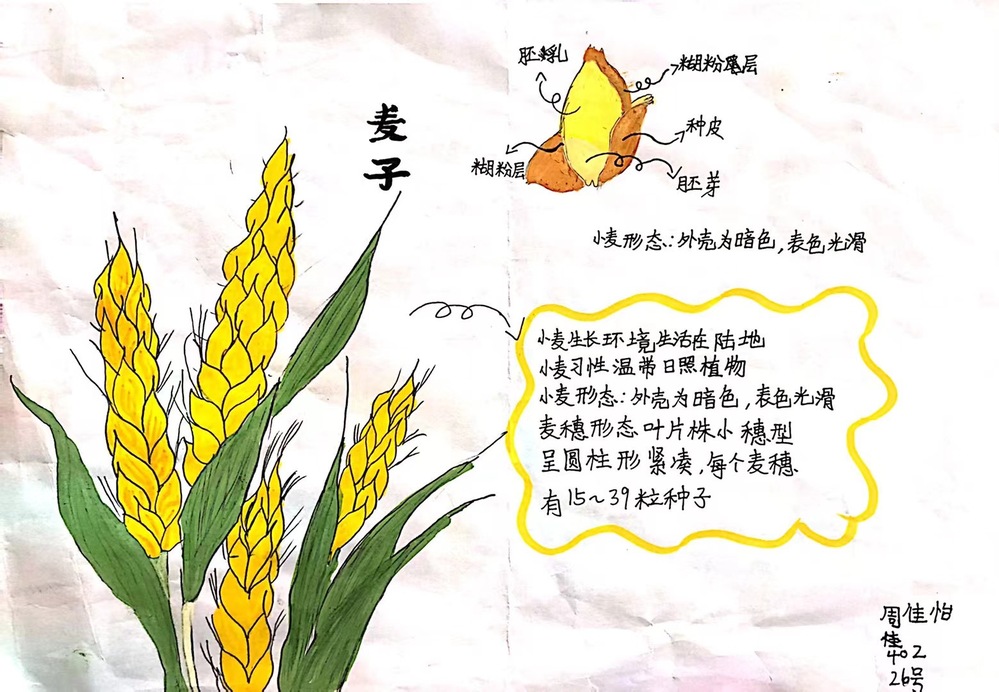 麦
子
胚乳
糊粉层
种皮
糊粉层
胚芽
小麦形态:外壳为暗色,表色光滑
小麦生长环境生活在陆地
小麦习性温带日照植物
小麦形态:外壳为暗色,表色光滑
麦穗形态叶片株小穗型
呈圆柱形紧凑,每个麦穗.
有15~39粒种子
周佳怡
402
26号